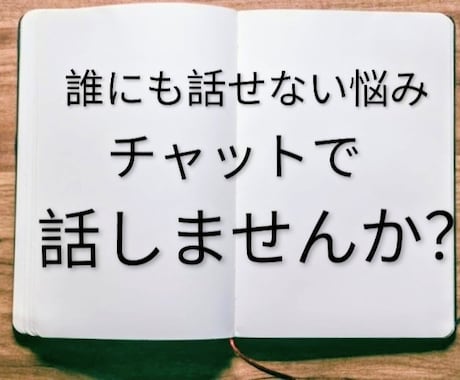 誰にも話せない悩み
チャットで
話しませんか?